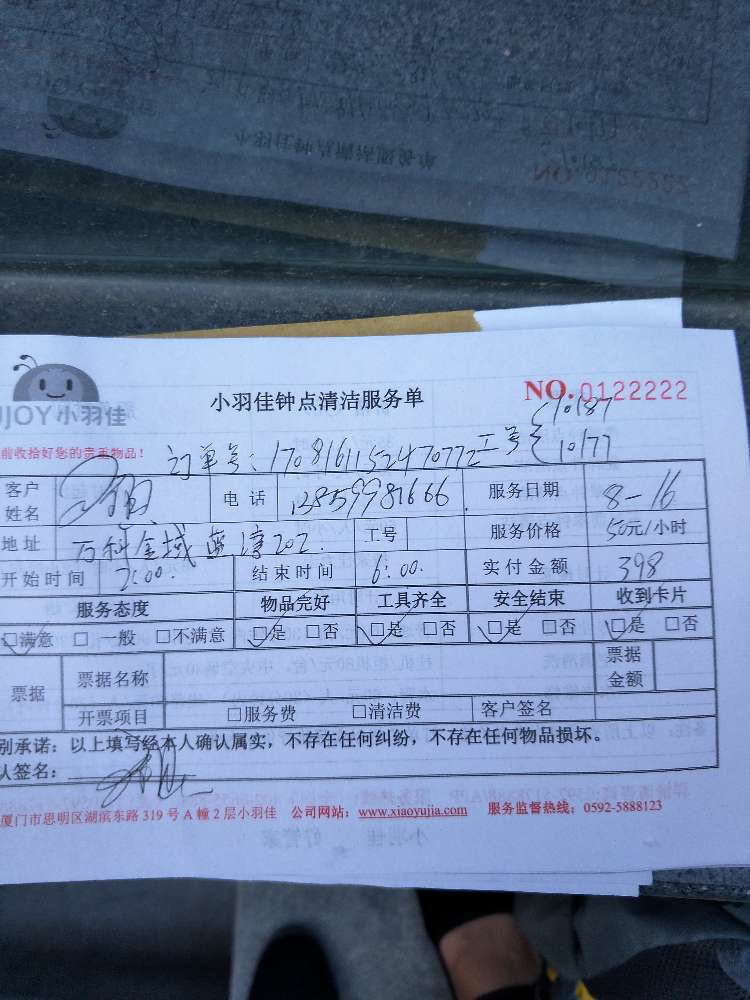 NO.0122222
小羽佳钟点清洁服务单
UJOY小羽佳
前收拾好您的贵重物品！
订单号：1708161152470772工号 10187
10177
客户姓名 电话 13859981666 服务日期 8-16
地址 万科金域蓝湾202 工号 服务价格 50元/小时
开始时间 2:00. 结束时间 6:00. 实付金额 398
服务态度 物品完好 工具齐全 安全结束 收到卡片
☑满意 □一般 □不满意 ☑是 □否 ☑是 □否 ☑是 □否 ☑是 □否
票据 票据名称 票据金额
开票项目 □服务费 □清洁费 客户签名
别承诺：以上填写经本人确认属实，不存在任何纠纷，不存在任何物品损坏。
认签名：
厦门市思明区湖滨东路 319 号 A 幢 2 层小羽佳 公司网站：www.xiaoyujia.com 服务监督热线：0592-5888123